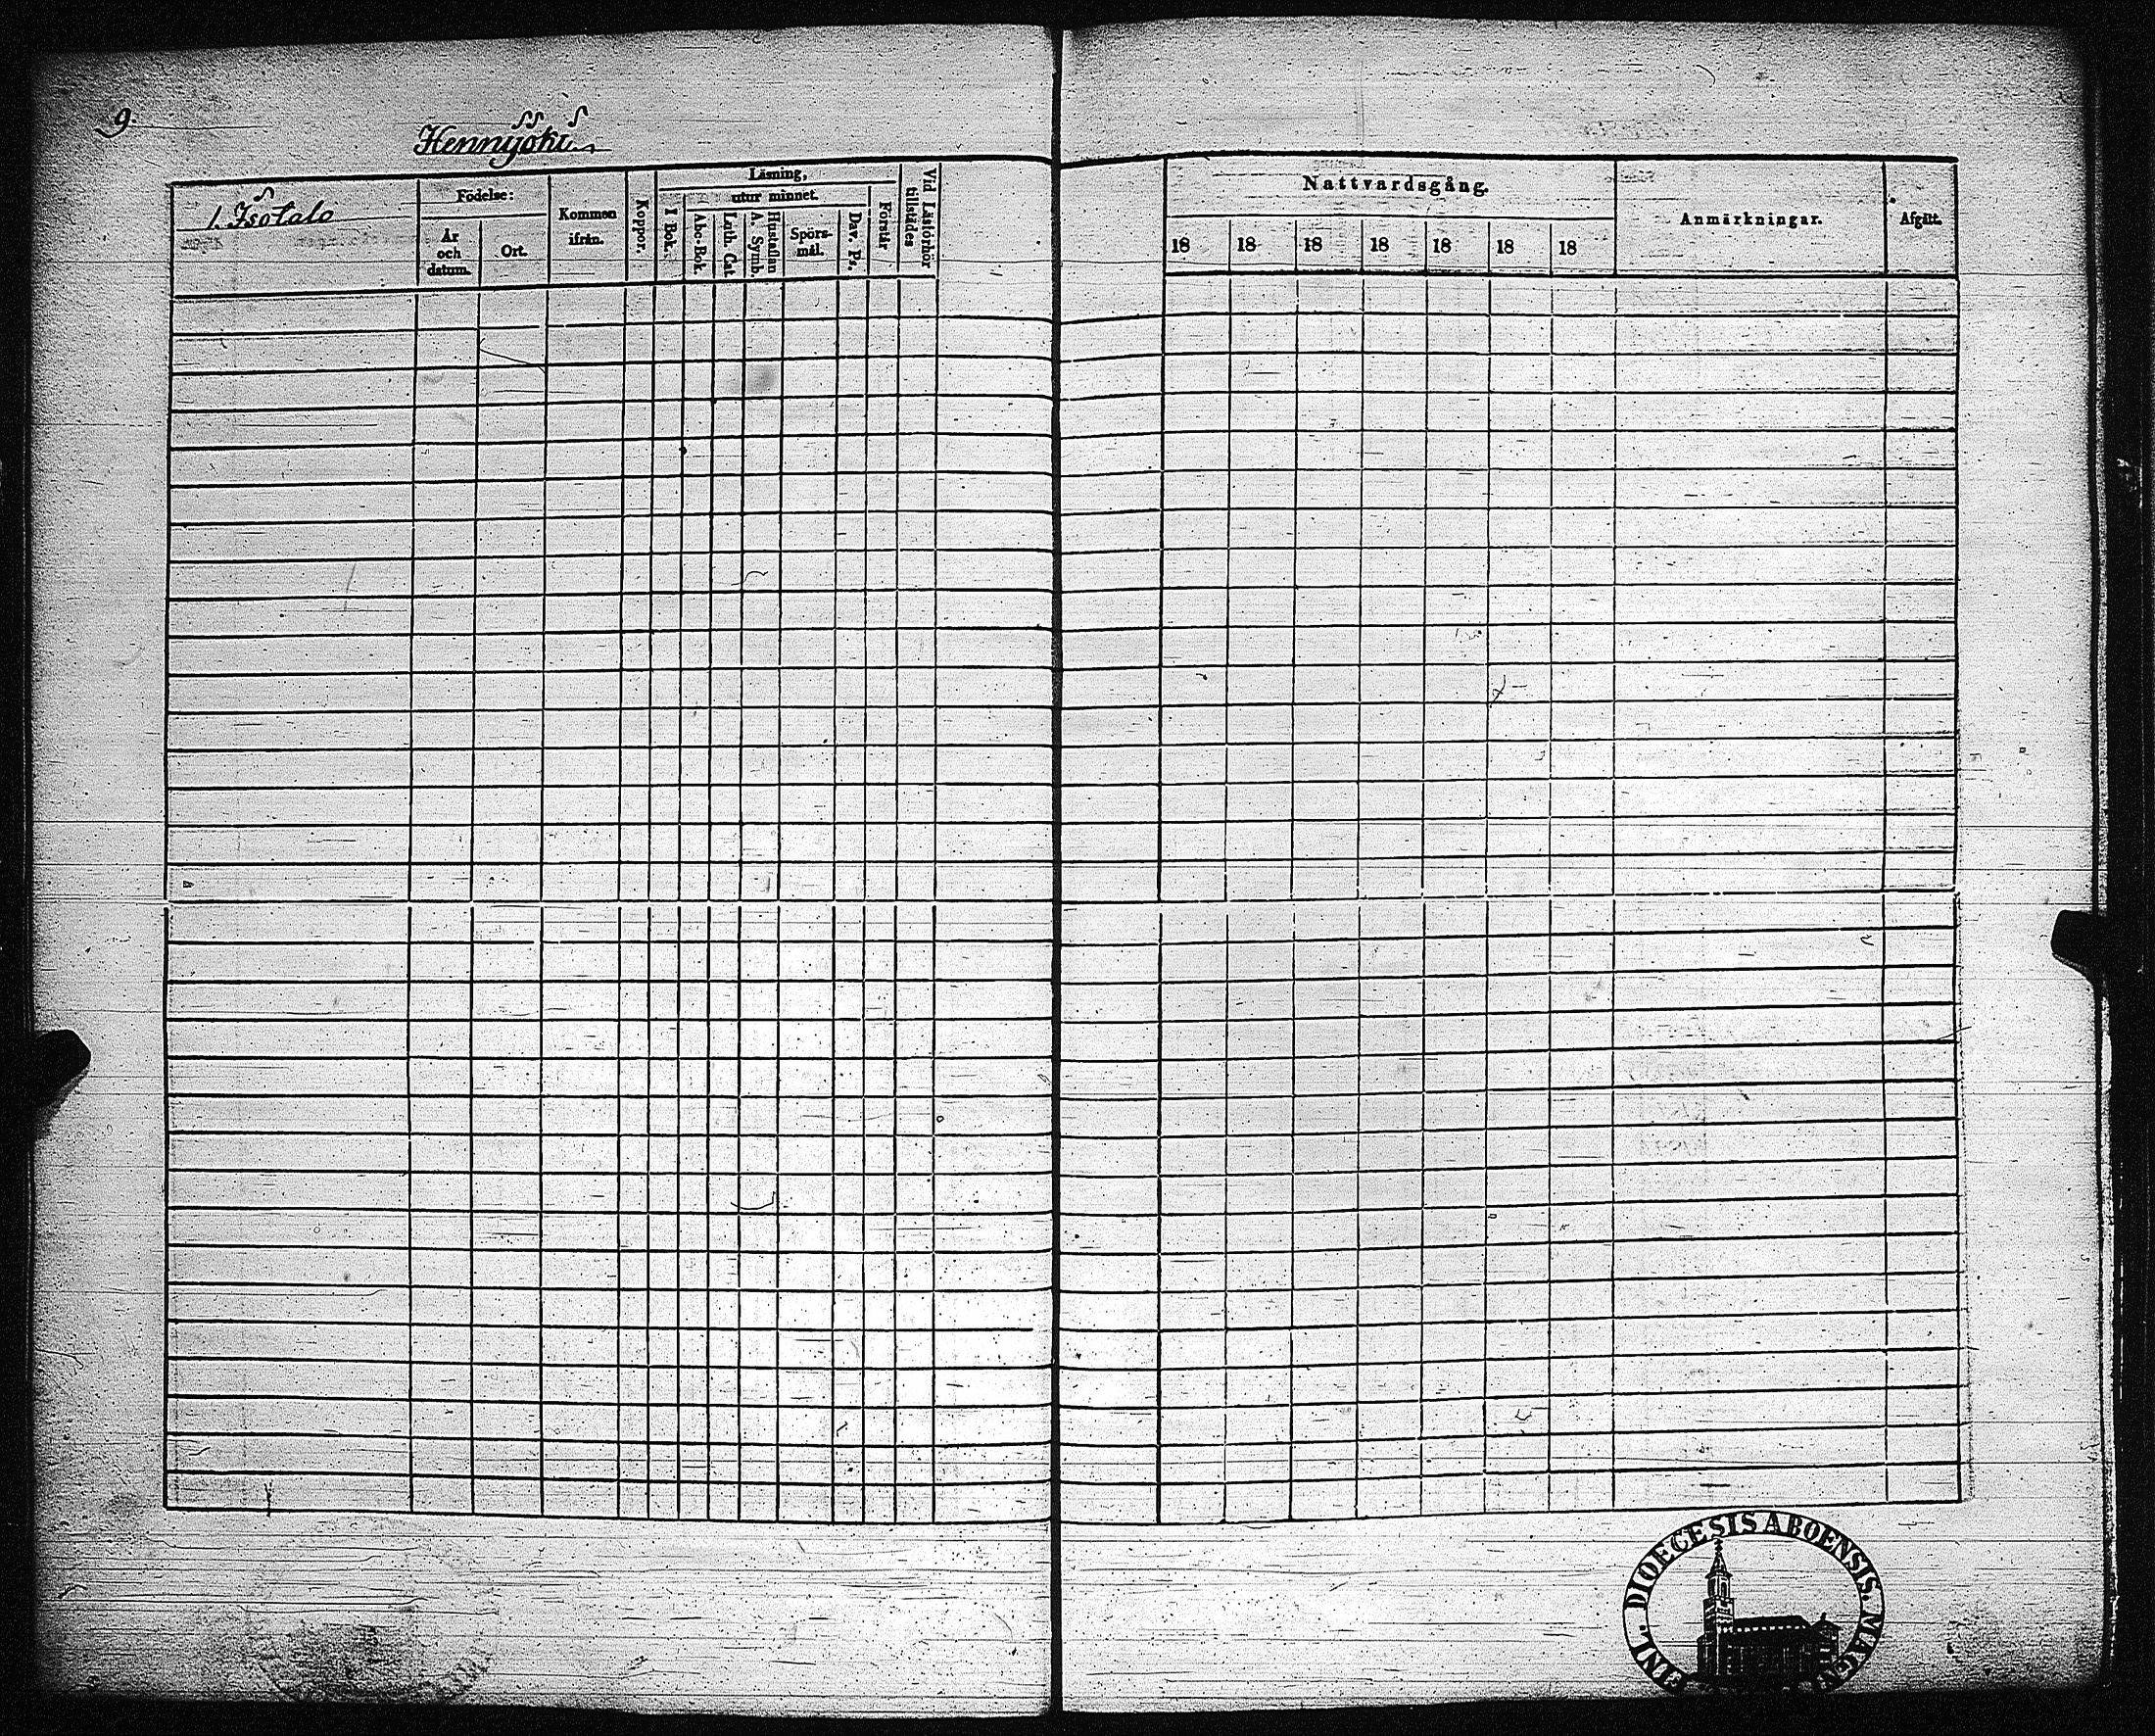 9.
Hennijoki
1. Isotalo
Födelse:
År och datum.
Ort.
Kommen ifrån.
Koppor.
Läsning,
utur minnet.
I Bok.
Abc-Bok.
Luth. Cat.
Hustaflan A. Symb.
Spörsmål.
Dav. Ps.
Förstår
Vid Läsförhör tillstädes
Nattvardsgång.
18 18 18 18 18 18 18
Anmärkningar.
Afgått.
DIOECESIS ABOENSIS.